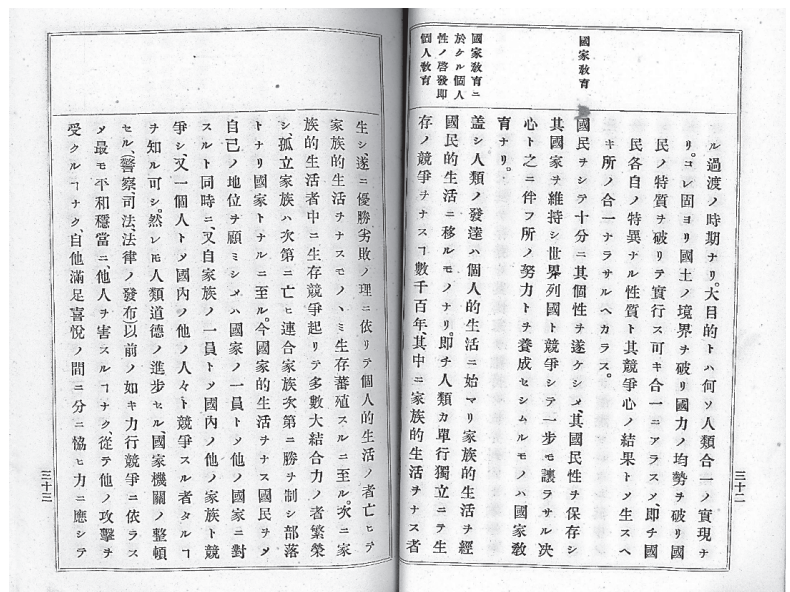 國家敎育
國家敎育ニ
於ケル個人
性ノ啓發卽
個人敎育
ル過渡ノ時期ナリ。大目的トハ何ソ人類合一ノ實現ナ
リ。コレ固ヨリ國土ノ境界ヲ破リ國力ノ均勢ヲ破リ國
民ノ特質ヲ破リテ實行ス可キ合一ニアラスメ、卽チ國
民各自ノ特異ナル性質ト其競爭心ノ結果トメ生スヘ
キ所ノ合一ナラサルヘカラス。
國民ヲシテ十分ニ其個性ヲ遂ケシメ、其國民性ヲ保存シ
其國家ヲ維持シ世界列國ト競爭シテ一步モ讓ラサル决
心ト之ニ件フ所ノ努力トヲ養成セシムルモノハ國家敎
育ナリ。
盖シ人類ノ發達ハ個人的生活ニ始マリ家族的生活ヲ經
國民的生活ニ移ルモノナリ。卽チ人類カ單行獨立ニテ生
存ノ競爭ヲナスヿ數千百年、其中ニ家族的生活ヲナス者
三十二
生シ遂ニ優勝劣敗ノ理ニ依リテ個人的生活ノ者亡ヒテ
家族的生活ヲナスモノヽミ生存蓄殖スルニ至ル。次ニ家
族的生活者中ニ生存競爭起リテ多數大結合力ノ者繁榮
シ、孤立家族ハ次第ニ亡ヒ連合家族次第ニ勝ヲ制シ部落
トナリ國家トナルニ至ル。今國家的生活ヲナス國民ヲメ
自己ノ地位ヲ顧ミシメハ國家ノ一員トメ他ノ國家ニ對
スルト同時ニ、又自家族ノ一員トメ國內ノ他ノ家族ト競
爭シ、又一個人トメ國內ノ他ノ人々ト競爭スル者タルヿ
ヲ知ル可シ。然レモ人類道德ノ進步セル、國家機關ノ整頓
セル、(警察、司法、法律ノ發布)以前ノ如キ力行競爭ニ依ラス
メ最モ平和穩當ニ、他人ヲ害スルヿナク、從テ他ノ攻擊ヲ
受クルヿナク、自他滿足喜悅ノ間ニ分ニ協ヒ力ニ應シテ
三十三